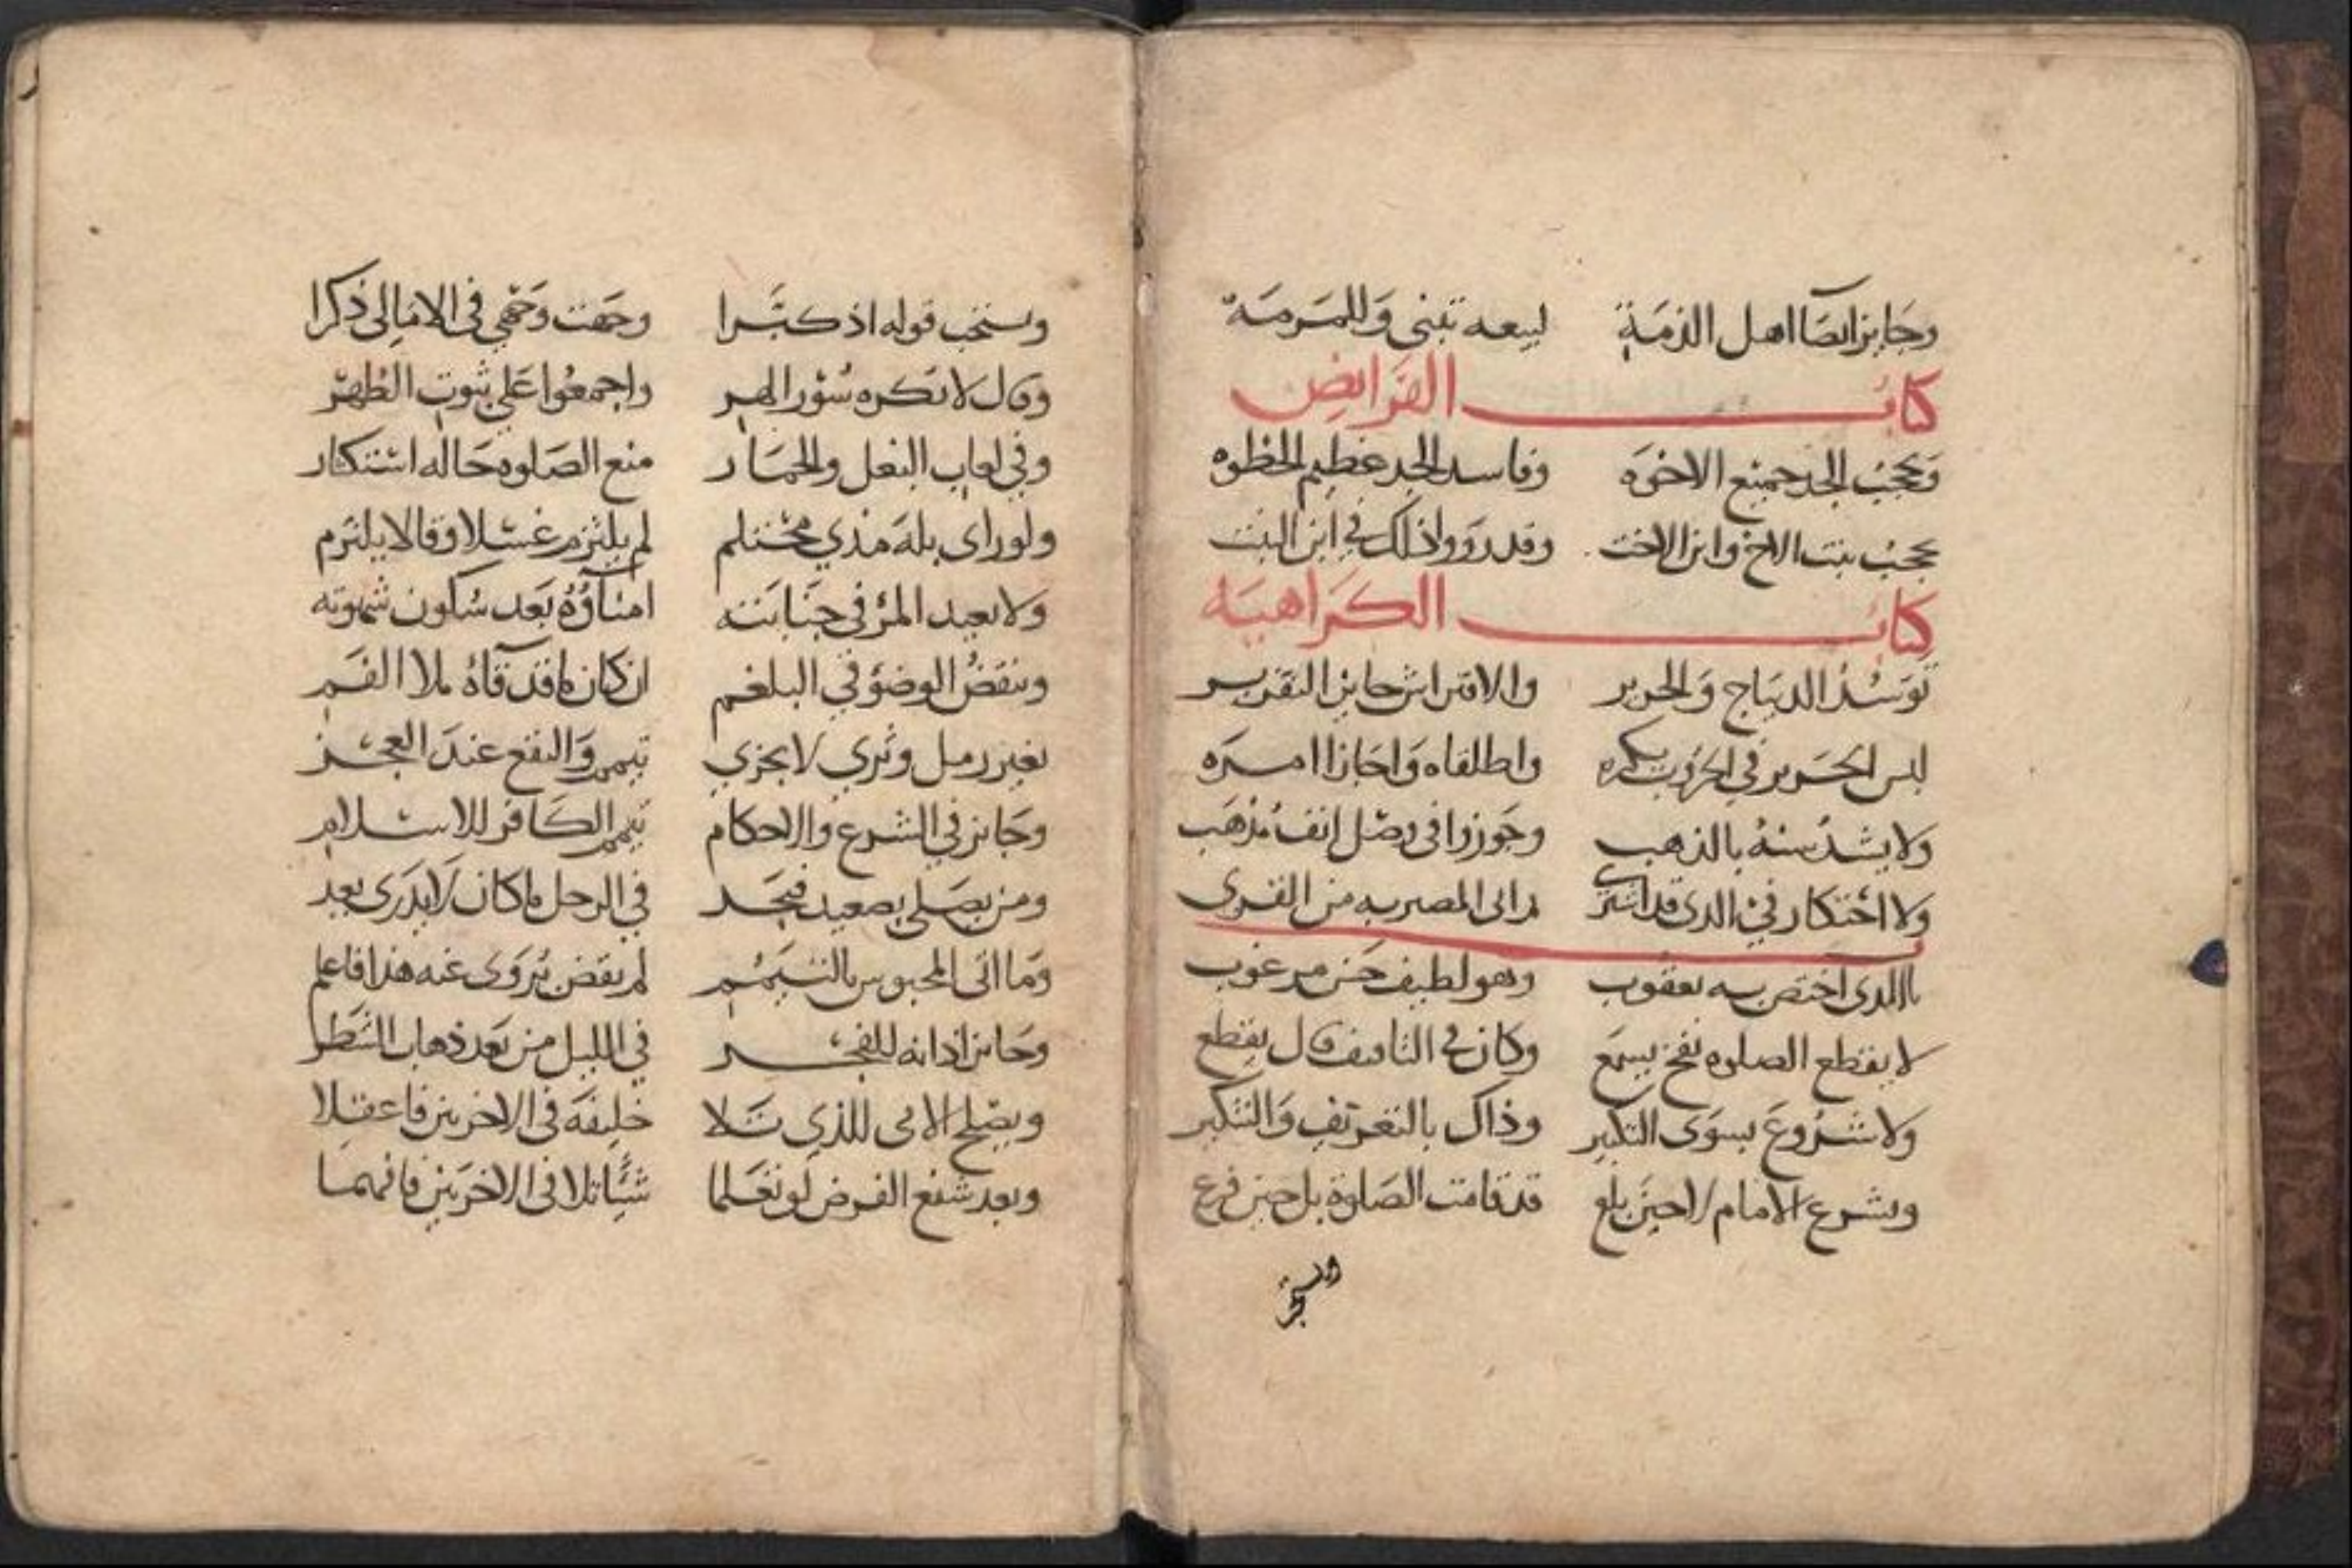 وجايز ايصا اهل الذمة لبيعه تبنى وللمرمة
كتاب الفرايض
وتحجب الجد جميع الاخوه وفاسد الجد عظيم الحظوه
تحجب بنت الاخ وابن الاخت وقد رووا ذلك في ابن البنت
كتاب الكراهيه
توسد الديباج والحرير والافتراش جايز التقرير
لبس الحرير في الحروب يكره واطلقاه واجازا امره
ولا يشد سنه بالذهب وجوزا في وصل انف مذهب
ولا احتكار في الذي قد اشترى من المصر به من القرى
باب الذي اختص به يعقوب وهو لطيف حسن مرغوب
لا يقطع الصلوه نفخ يسمع وكان في التافيف قال يقطع
ولا شروع بسوى التكبير وذاك بالتعريف والتنكير
ويشرع الامام لا حين بلغ قد قامت الصلوة بل حين فرغ
ويستحب قوله اذ كبرا وجهت وجهي في الامالى ذكرا
وقال لا تكره سؤر الهر واجمعوا على ثبوت الطهر
وفي لعاب البغل والحمار منع الصلوه حاله استكثار
ولو راى بله مذي محتلم لم يلتزم غسلا وقالا يلتزم
ولا يعيد المرء في جنابته امناؤه بعد سكون شهوته
وينقض الوضؤ في البلغم ان كان ما قد قاه ملا الفم
بغير رمل وثرى لا يجزي تيمم والنقع عند العجز
وجايز في الشرع والاحكام تيمم الكافر للاسلام
ومن يصلى بصعيد فيجد في الرحل ما كان لا يدرى يعد
وما اتى المحبوس بالتيمم لم يقض يروى عنه هذا فاعلم
وجايز اذانه للفجر في الليل من بعد ذهاب الشطر
ويصلح الامى للذي تلا خليفة في الاخريين فاعقلا
وبعد شفع الفرض لو تعلما شيئا تلا في الاخريين فافهما